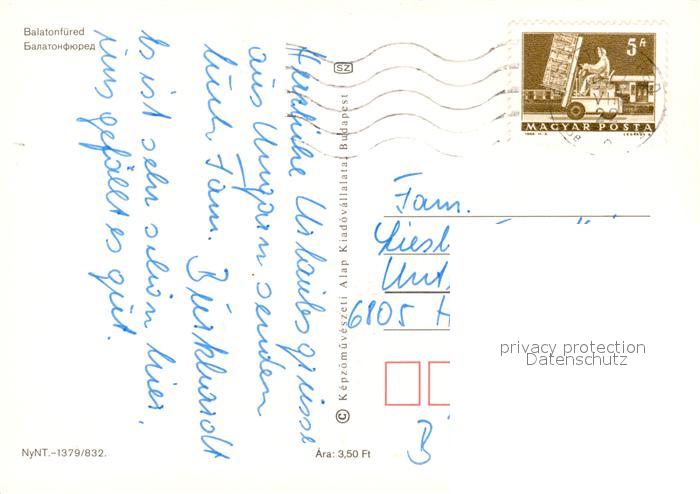 Balatonfüred
Балатонфюред
Herzliche Urlaubsgrüsse
aus Ungarn senden
Euch Fam. Burkhardt
Es ist sehr schön hier,
uns gefällt es gut.
© Képzőművészeti Alap Kiadóvállalata, Budapest
SZ
5 Ft
MAGYAR POSTA
Fam.
Liesl
Unt
6905 H
privacy protection
Datenschutz
NyNT.-1379/832.
Ára: 3,50 Ft